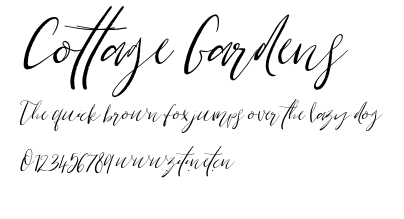 Cottage Gardens
The quick brown fox jumps over the lazy dog
0123456789 wwwzitinetcn